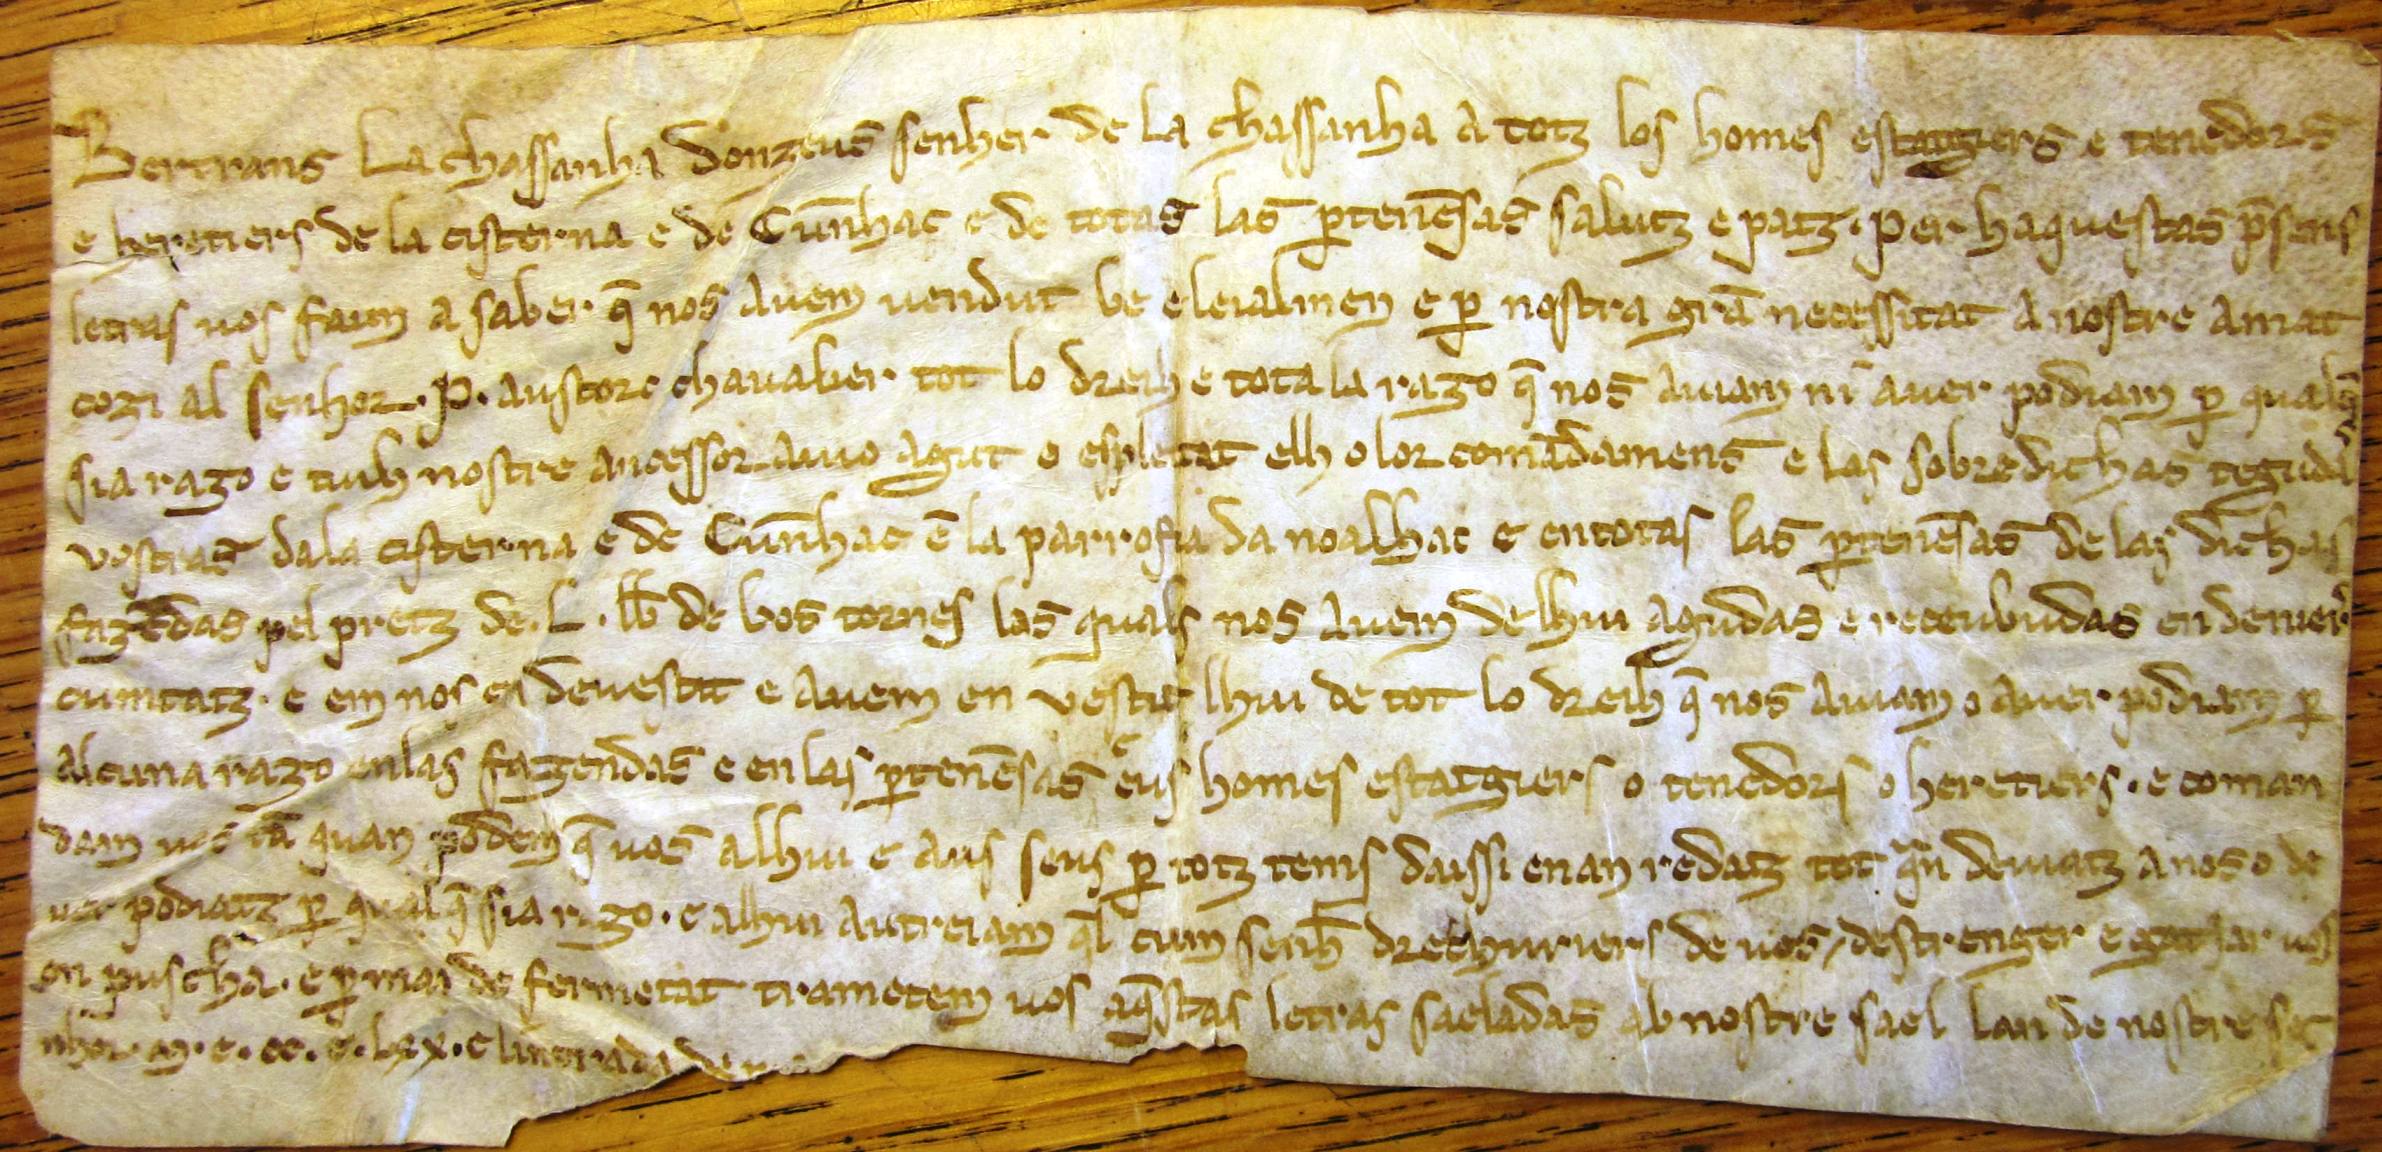 Bertrans Lachassanha donzeus senher de la chassanha a totz los homes estatgiers e tenedors
e heretiers de la cisterna e de Cūnhac e de totas las ꝑtenēsas salutz e patz · Per haquestas p̄sens
letras vos fam a saber q̄ nos avem vendut be e leialmen e ꝑ nostra grā necessitat a nostre amat
cozi al senhor · P · austorc chavalier tot lo dreih e tota la razo q̄ nos aviam ni aver podiam ꝑ qualq̄
sia razo e tuih nostre ancessor avio agut o espletat elh o lor comādamens e las sobredichas tegudas
vostras da la cisterna e de Cūnhac ē la parrofia da noalhac e en totas las ꝑtenēsas de las dichas
fazēdas pel pretz de · L · lb̄ de bos tornes las quals nos avem de lhui agudas e receubudas en deniers
cumtatz · e em nos en devestit e avem en vestit lhui de tot lo dreih q̄ nos aviam o aver podiam ꝑ
alcuna razo en las fazendas e en las ꝑtenēsas e ēus homes estatgiers o tenedors o heretiers · e coman
dam vos tā quan podem q̄ vos a lhui e aus seus ꝑ totz tems daissi enan redatz tot qn̄ deviatz a nos o de
ver podiatz ꝑ qualq̄ sia razo · e a lhui autreiam q̄l cum senh̄ drechuriers de vos destrenger e gatjar vos
en puscha · e ꝑ mai de fermetat trametem vos aq̄stas letras saeladas ab nostre sael lan de nostre se
nhor · m · e · cc · e · lxx · e lintrada de